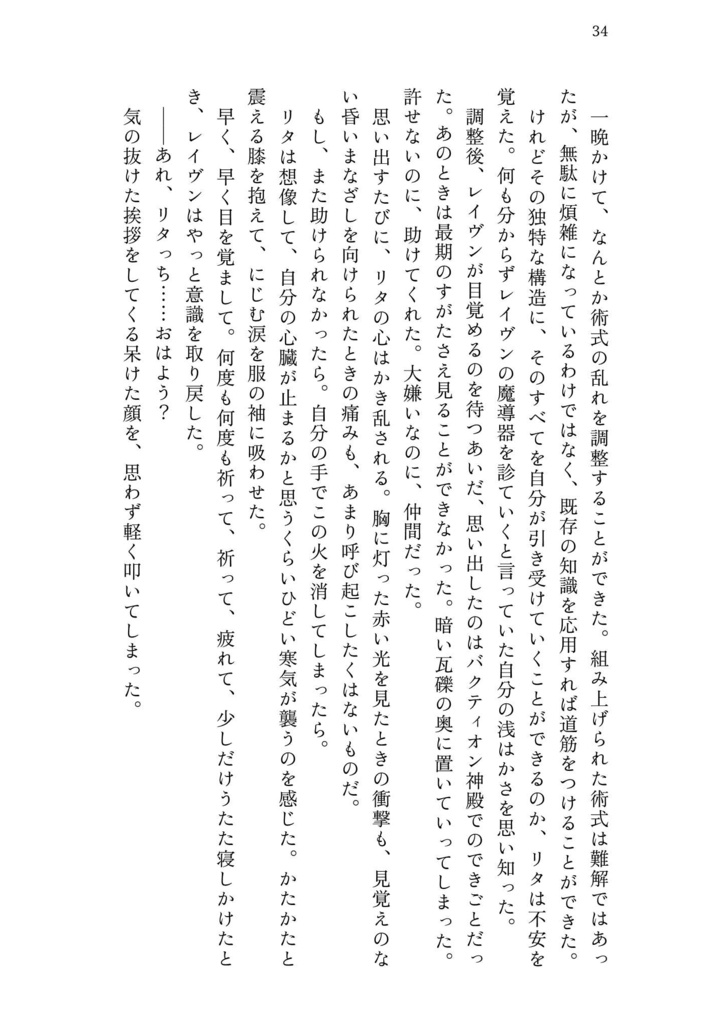 34
一晩かけて、なんとか術式の乱れを調整することができた。組み上げられた術式は難解ではあっ
たが、無駄に煩雑になっているわけではなく、既存の知識を応用すれば道筋をつけることができた。
けれどその独特な構造に、そのすべてを自分が引き受けていくことができるのか、リタは不安を
覚えた。何も分からずレイヴンの魔導器を診ていくと言っていた自分の浅はかさを思い知った。
調整後、レイヴンが目覚めるのを待つあいだ、思い出したのはバクティオン神殿でのできごとだっ
た。あのときは最期のすがたさえ見ることができなかった。暗い瓦礫の奥に置いていってしまった。
許せないのに、助けてくれた。大嫌いなのに、仲間だった。
思い出すたびに、リタの心はかき乱される。胸に灯った赤い光を見たときの衝撃も、見覚えのな
い昏いまなざしを向けられたときの痛みも、あまり呼び起こしたくはないものだ。
もし、また助けられなかったら。自分の手でこの火を消してしまったら。
リタは想像して、自分の心臓が止まるかと思うくらいひどい寒気が襲うのを感じた。かたかたと
震える膝を抱えて、にじむ涙を服の袖に吸わせた。
早く、早く目を覚まして。何度も何度も祈って、祈って、疲れて、少しだけうたた寝しかけたと
き、レイヴンはやっと意識を取り戻した。
――あれ、リタっち……おはよう?
気の抜けた挨拶をしてくる呆けた顔を、思わず軽く叩いてしまった。